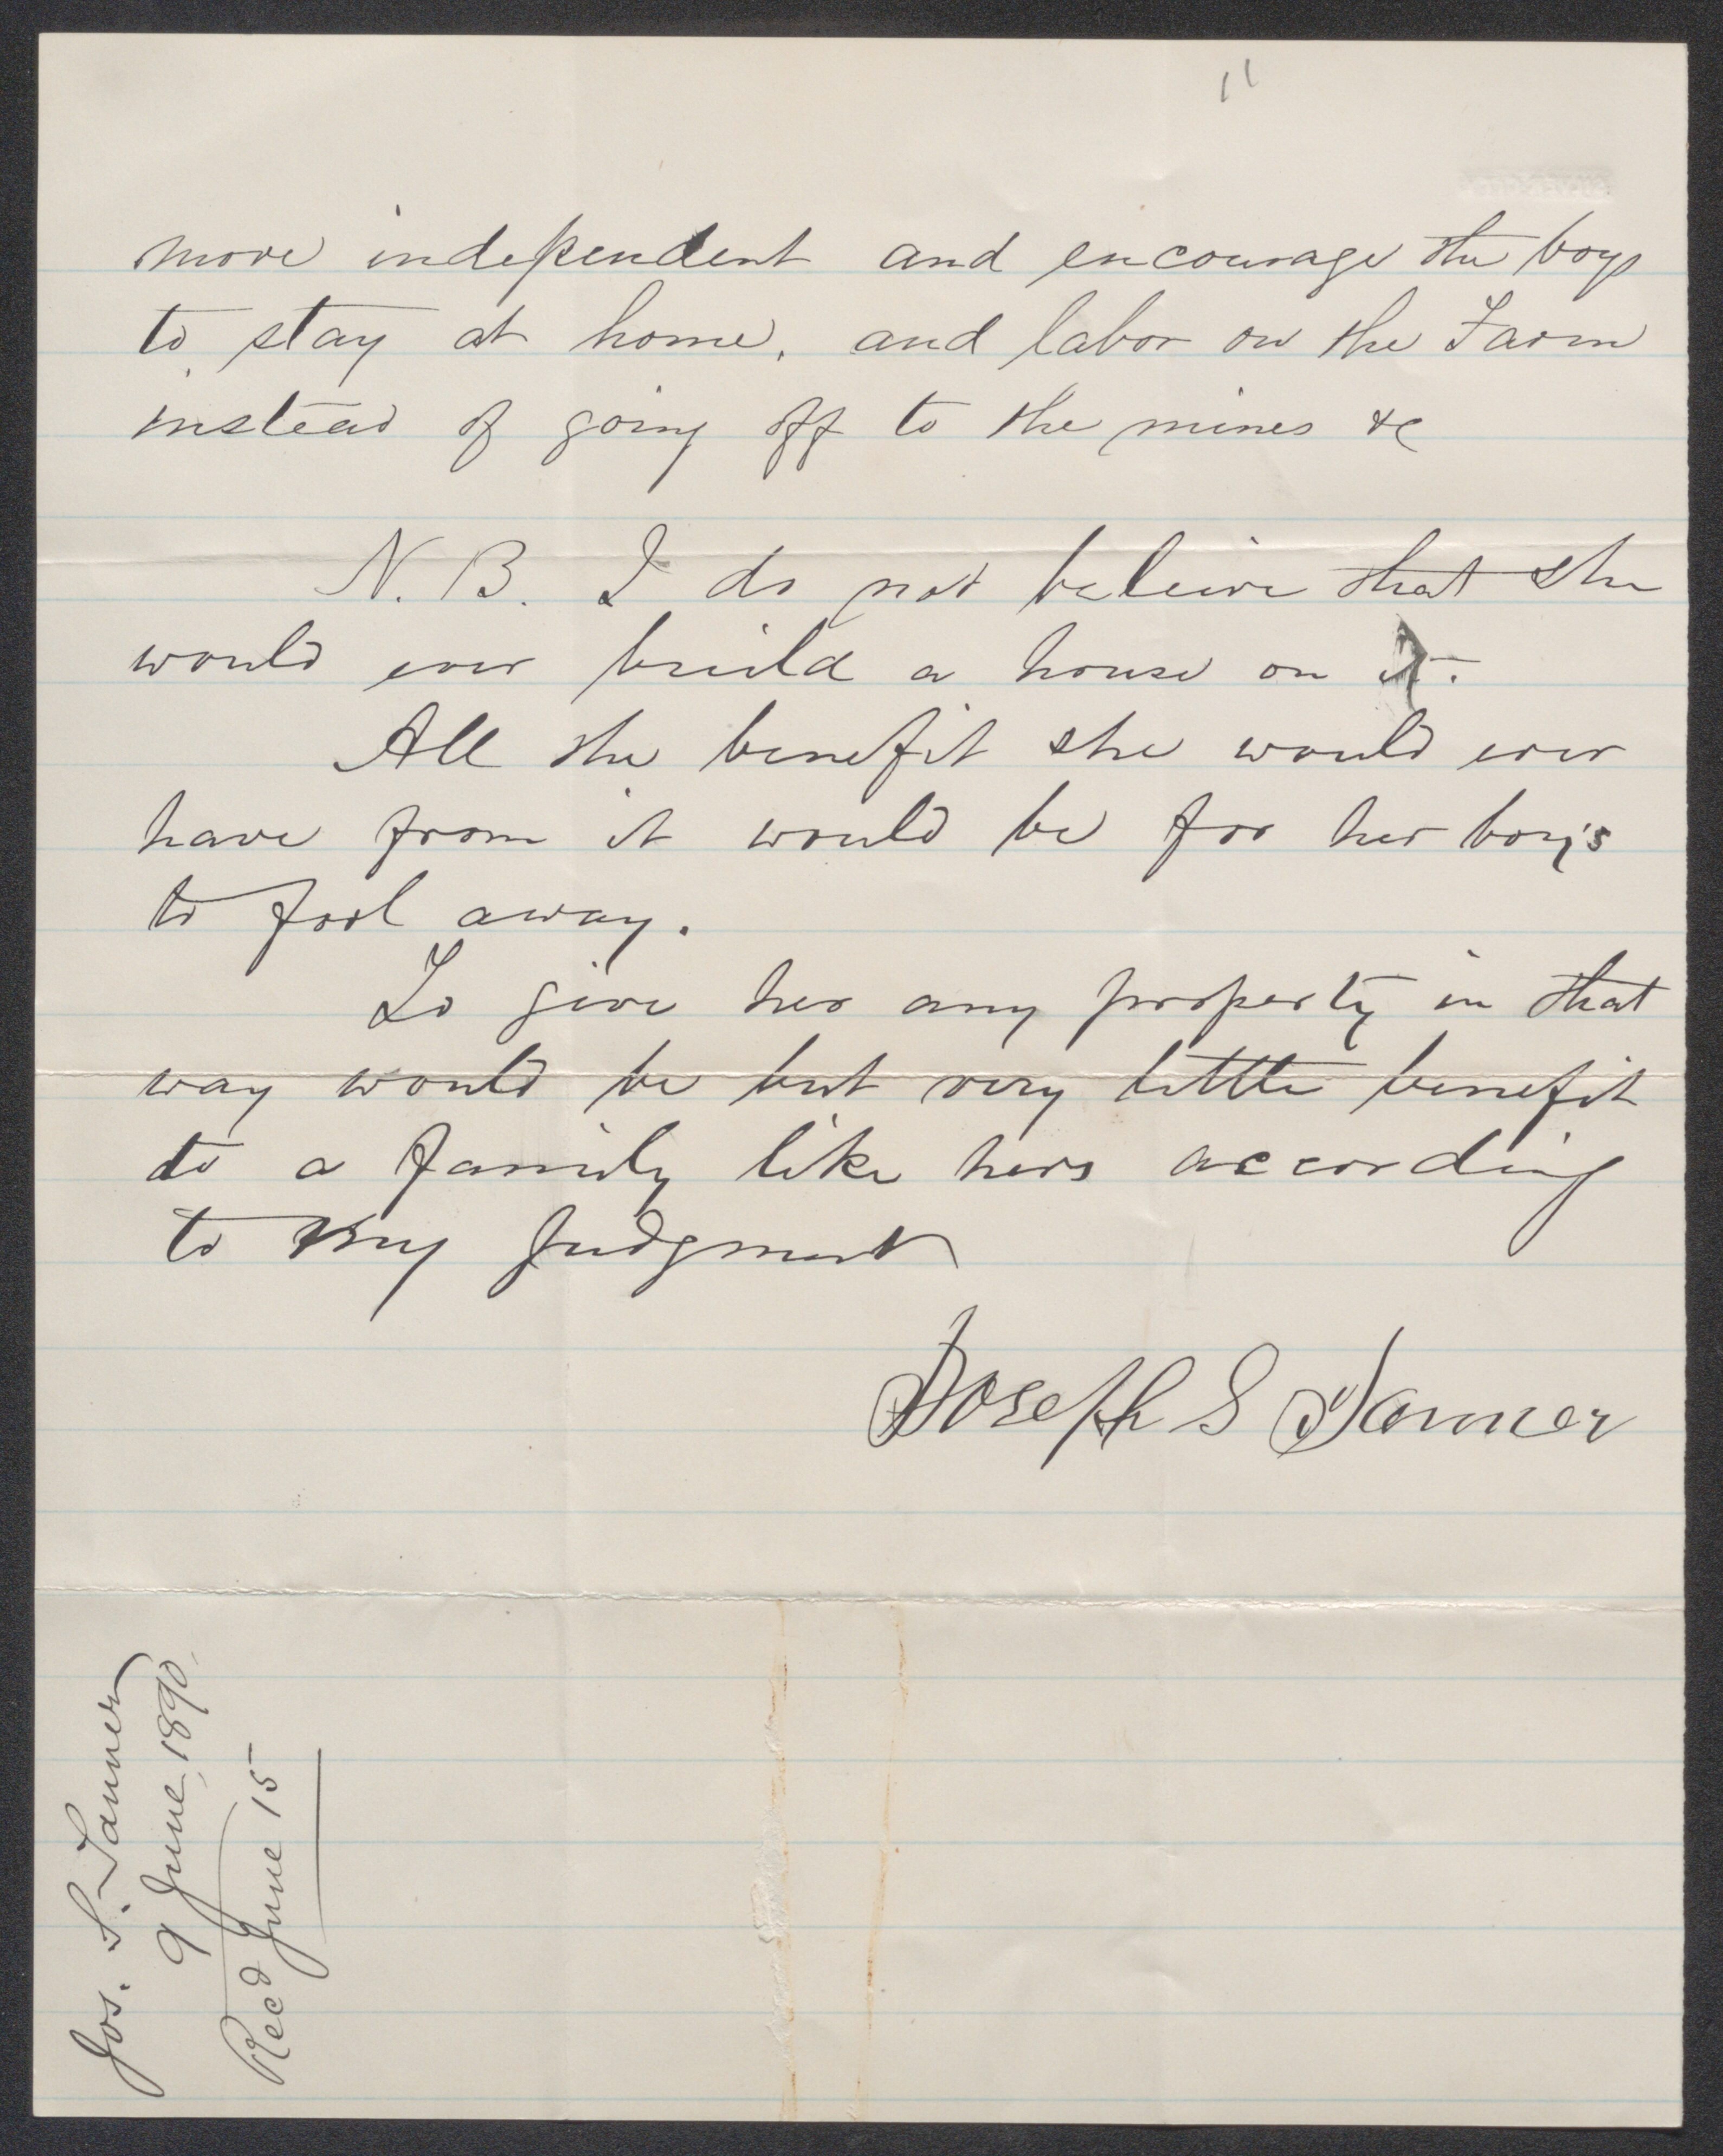 11
more independent and encourage the boys
to stay at home, and labor on the Farm
instead of going off to the mines &c
N. B. I do not beleive that she
would ever build a house on it.
All the benefit she would ever
have from it would be for her boy's
to fool away.
To give her any property in that
way would be but very little benefit
to a family like hers according
to my Judgment
Joseph S Tanner
Jos. S. Tanner
9 June, 1890.
Recd June 15